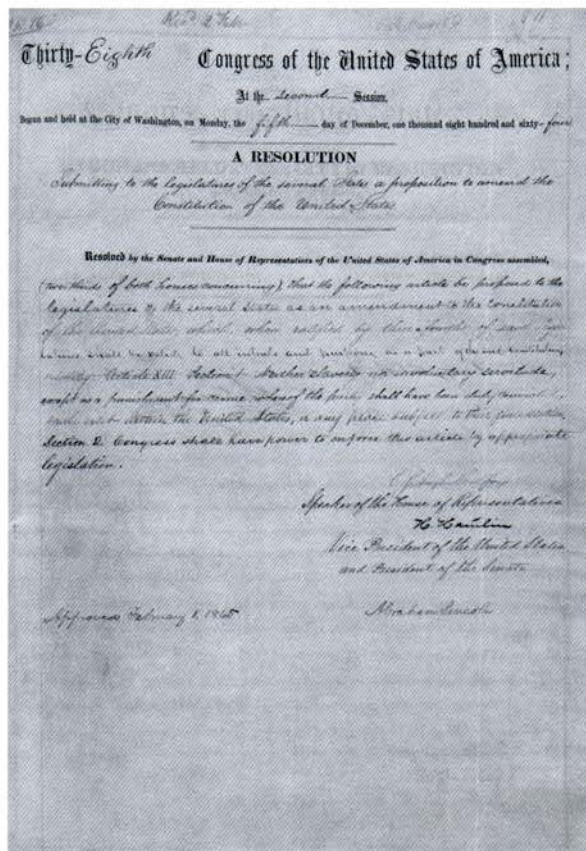 Thirty-Eighth Congress of the United States of America;
At the second Session,
Begun and held at the City of Washington, on Monday, the fifth day of December, one thousand eight hundred and sixty-four
A RESOLUTION
Submitting to the legislatures of the several States a proposition to amend the
Constitution of the United States.
Resolved by the Senate and House of Representatives of the United States of America in Congress assembled,
(two thirds of both houses concurring), That the following article be proposed to the
legislatures of the several States as an amendment to the constitution
of the United States, which, when ratified by three fourths of said
shall be valid, to all intents and purposes, as a part of the said constitution,
namely: Article XIII. Section 1. Neither slavery nor involuntary servitude,
except as a punishment for crime whereof the party shall have been duly convicted,
shall exist within the United States, or any place subject to their jurisdiction.
Section 2. Congress shall have power to enforce this article by appropriate
legislation.
Speaker of the House of Representatives
H. Hamlin
Vice President of the United States
and President of the Senate
Approved February 1, 1865
Abraham Lincoln